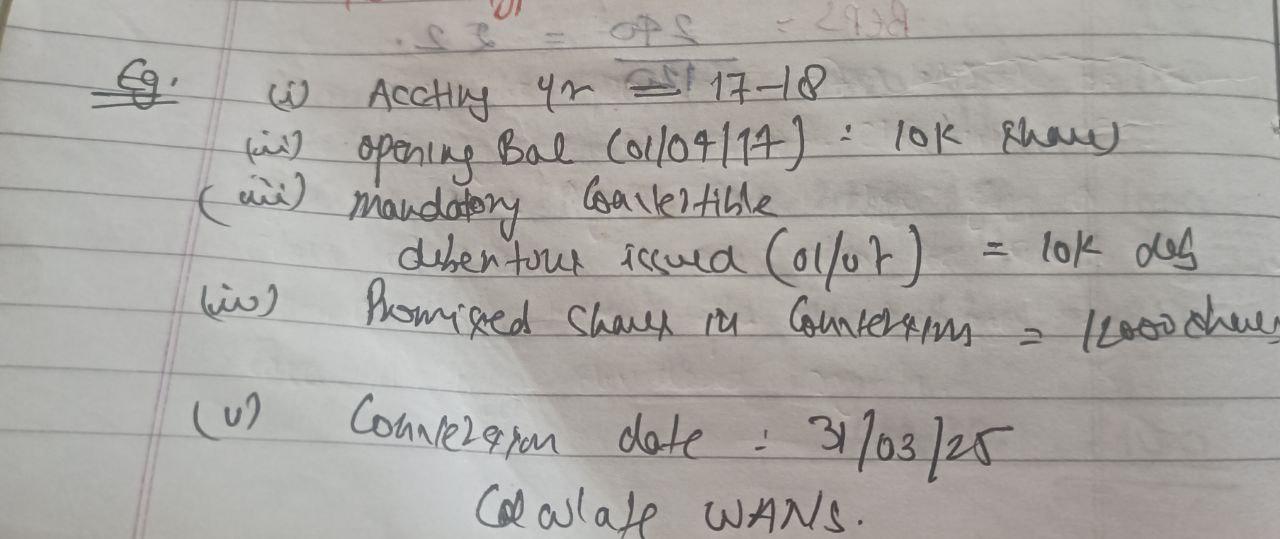 Eg. (i) Acctng yr = 17-18
(ii) opening Bal (01/04/17) : 10k shares
(iii) mandatory Convertible
debentoures issued (01/07) = 10k deb
(iv) Promised shares in Conversion = 12000 shares
(v) Conversion date : 31/03/25
Calculate WANS.